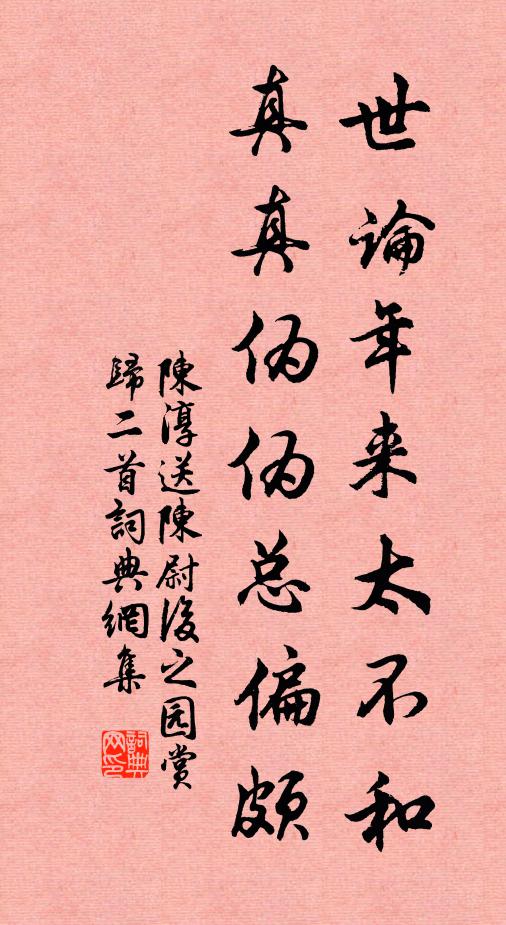 世論年来太不和
真真伪伪总偏颇
陳淳送陳尉後之园赏
歸二首詞典網集
詞典網印